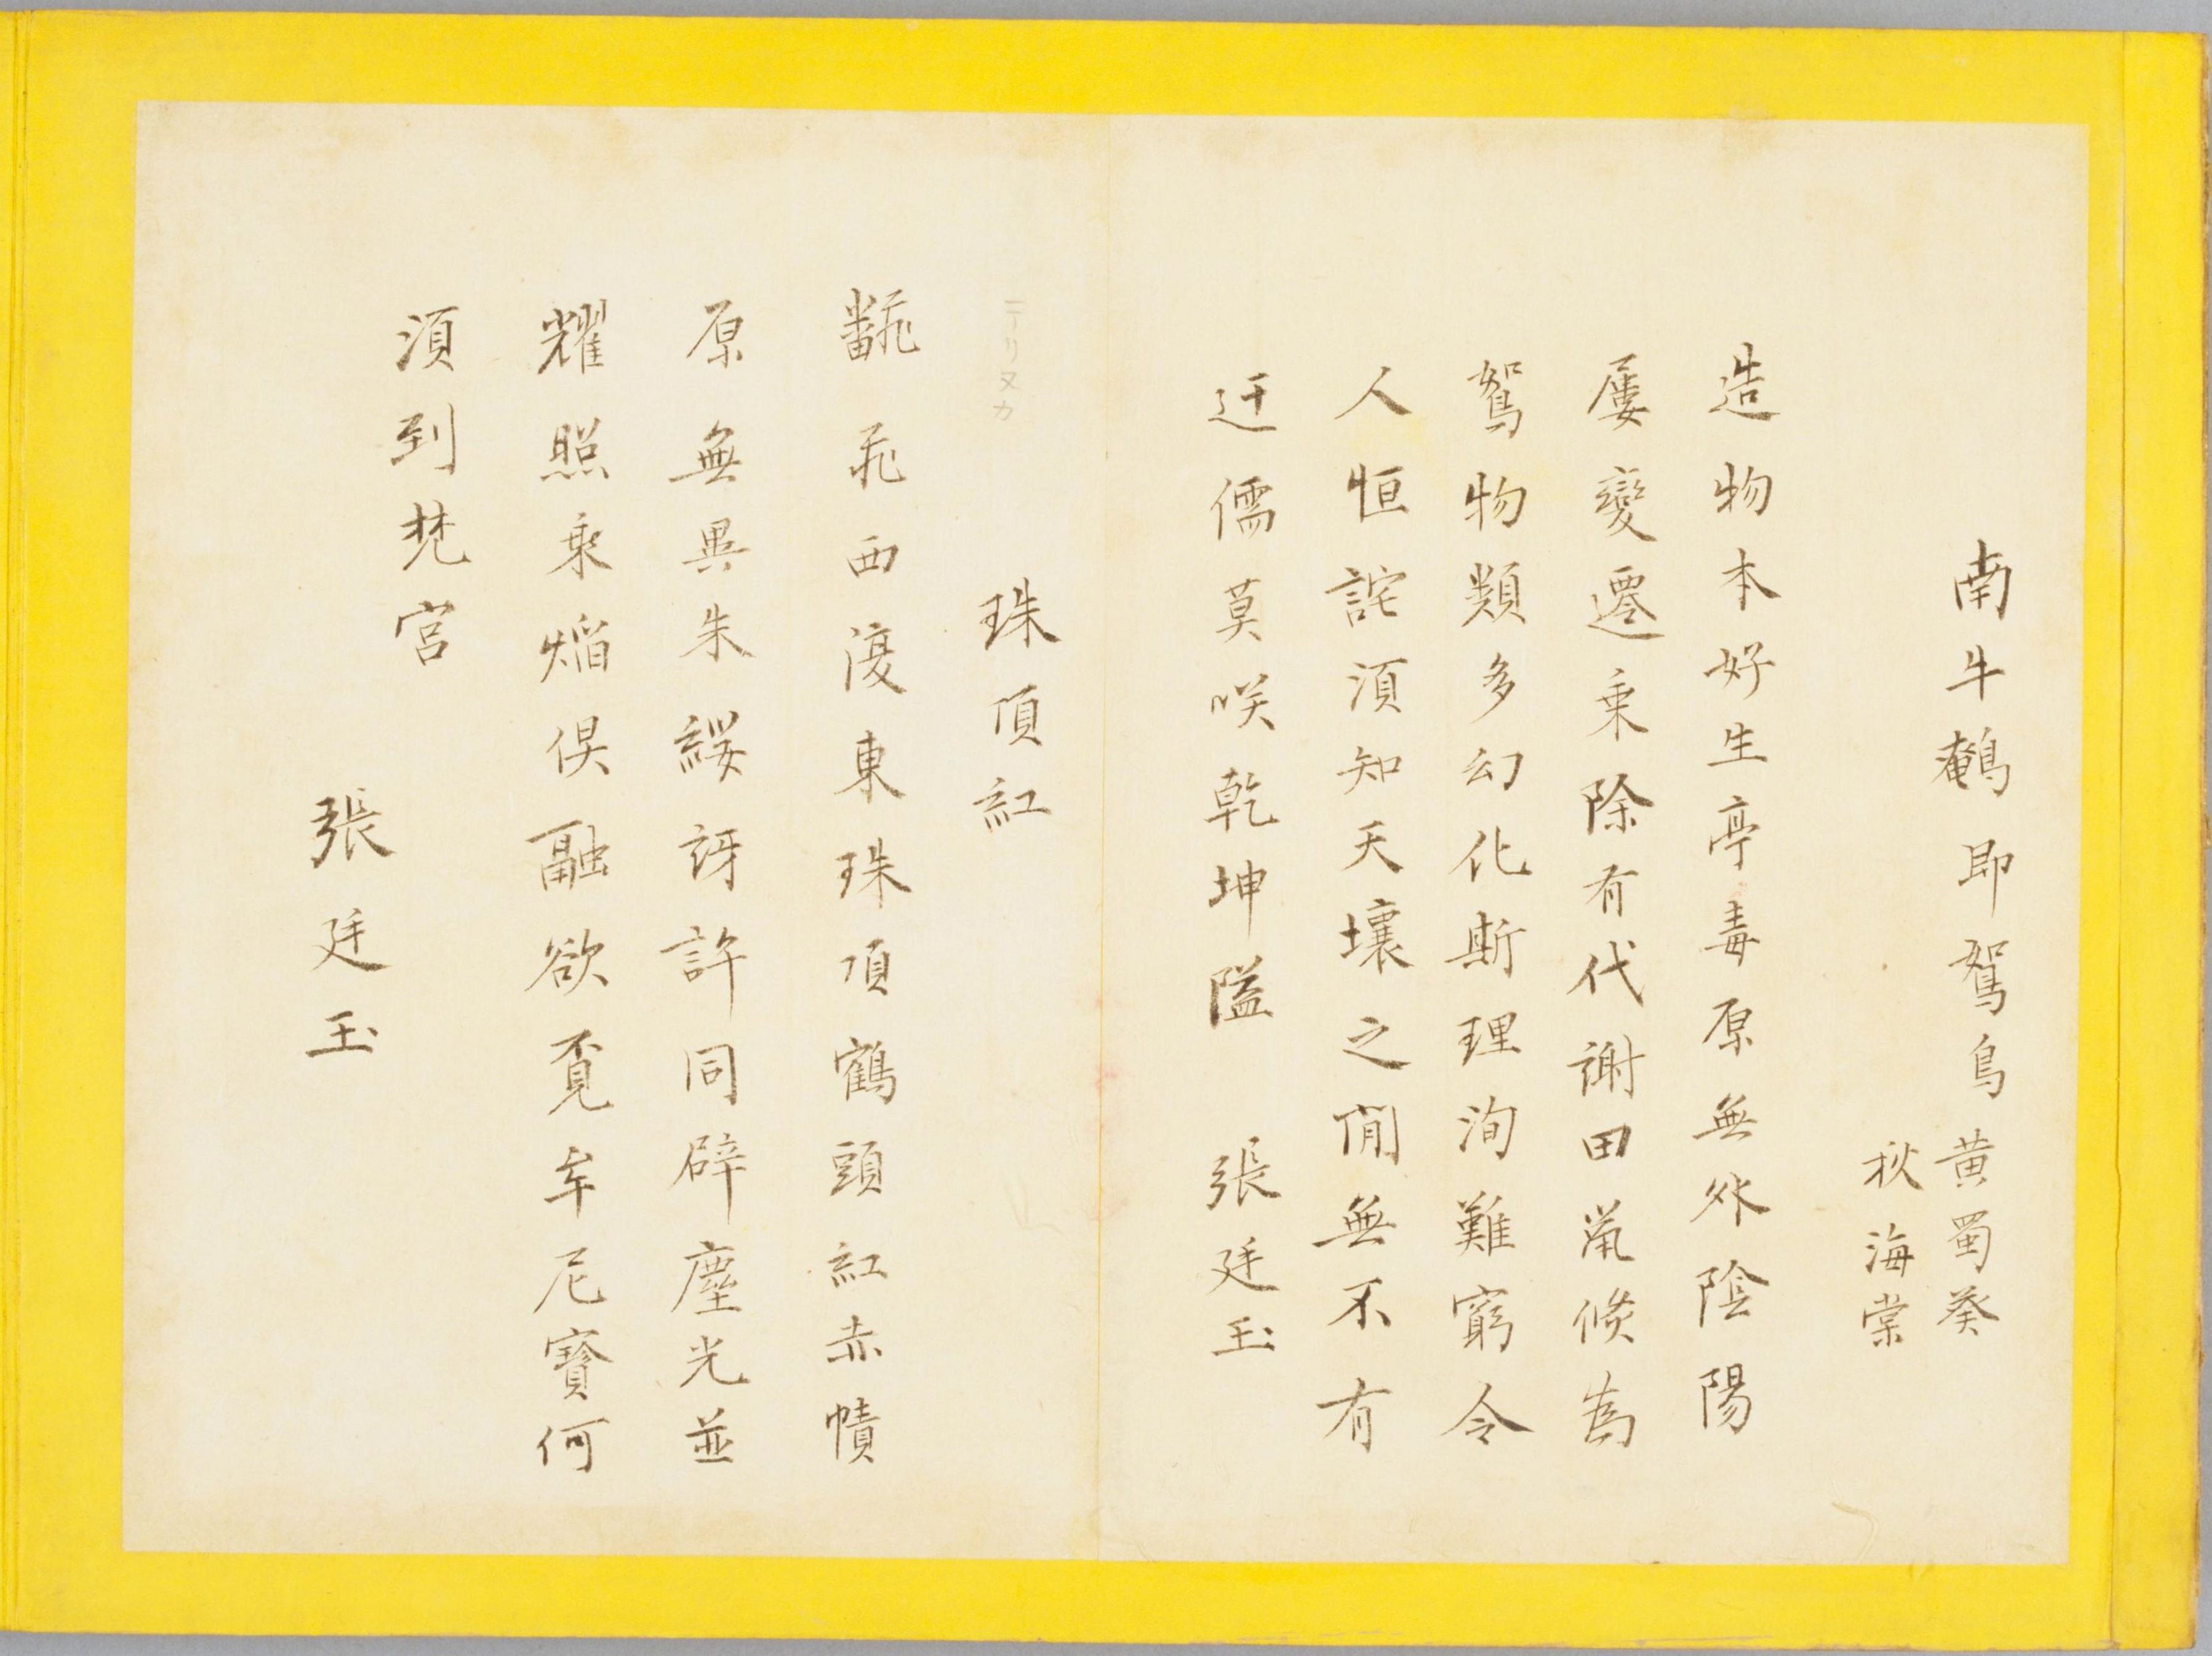 南牛鵪即鴽鳥黃蜀葵
秋海棠
造物本好生亭毒原無外陰陽
屢變遷乘除有代謝田鼠倐為
鴽物類多幻化斯理洵難窮今
人恒詫須知天壤之間無不有
迂儒莫咲乾坤隘　張廷玉
珠頂紅
ニーリヌカ
翻飛西復東珠頂鶴頭紅赤幘
原無異朱綬訝許同辟塵光並
耀照乘熖俱融欲覓牟尼寶何
須到梵宮
張廷玉